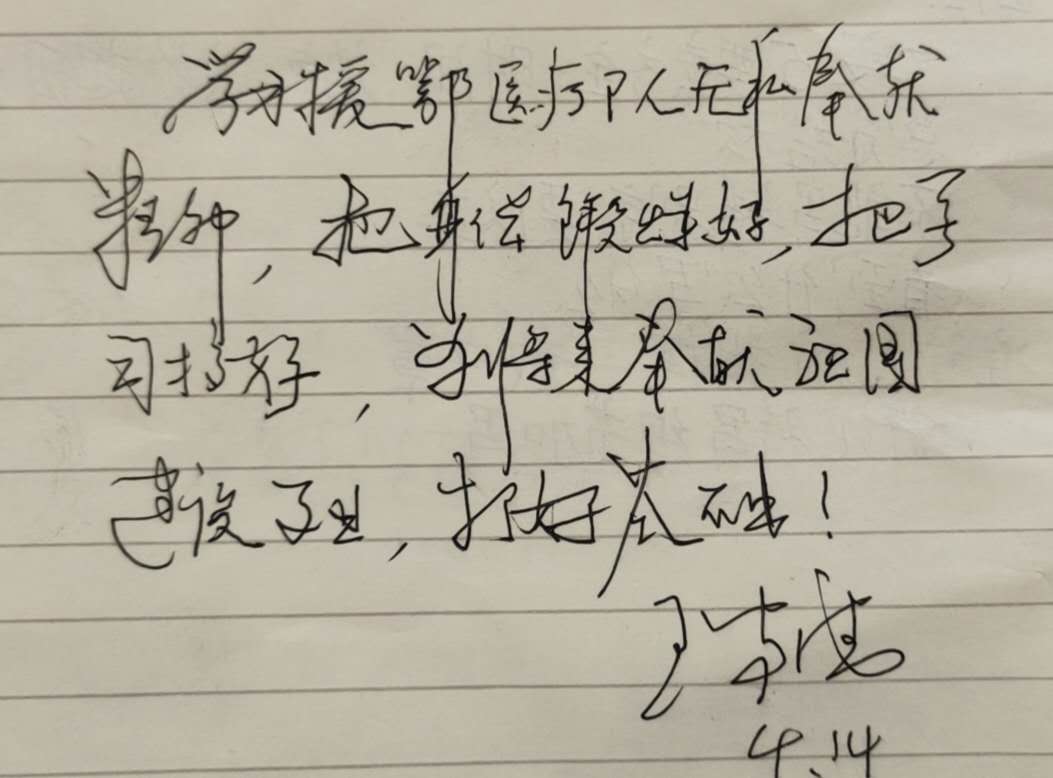 学习援鄂医疗队人无私奉献
精神，把身体锻炼好，把学
习搞好，为将来奉献祖国
建设事业，打好基础！
4.14